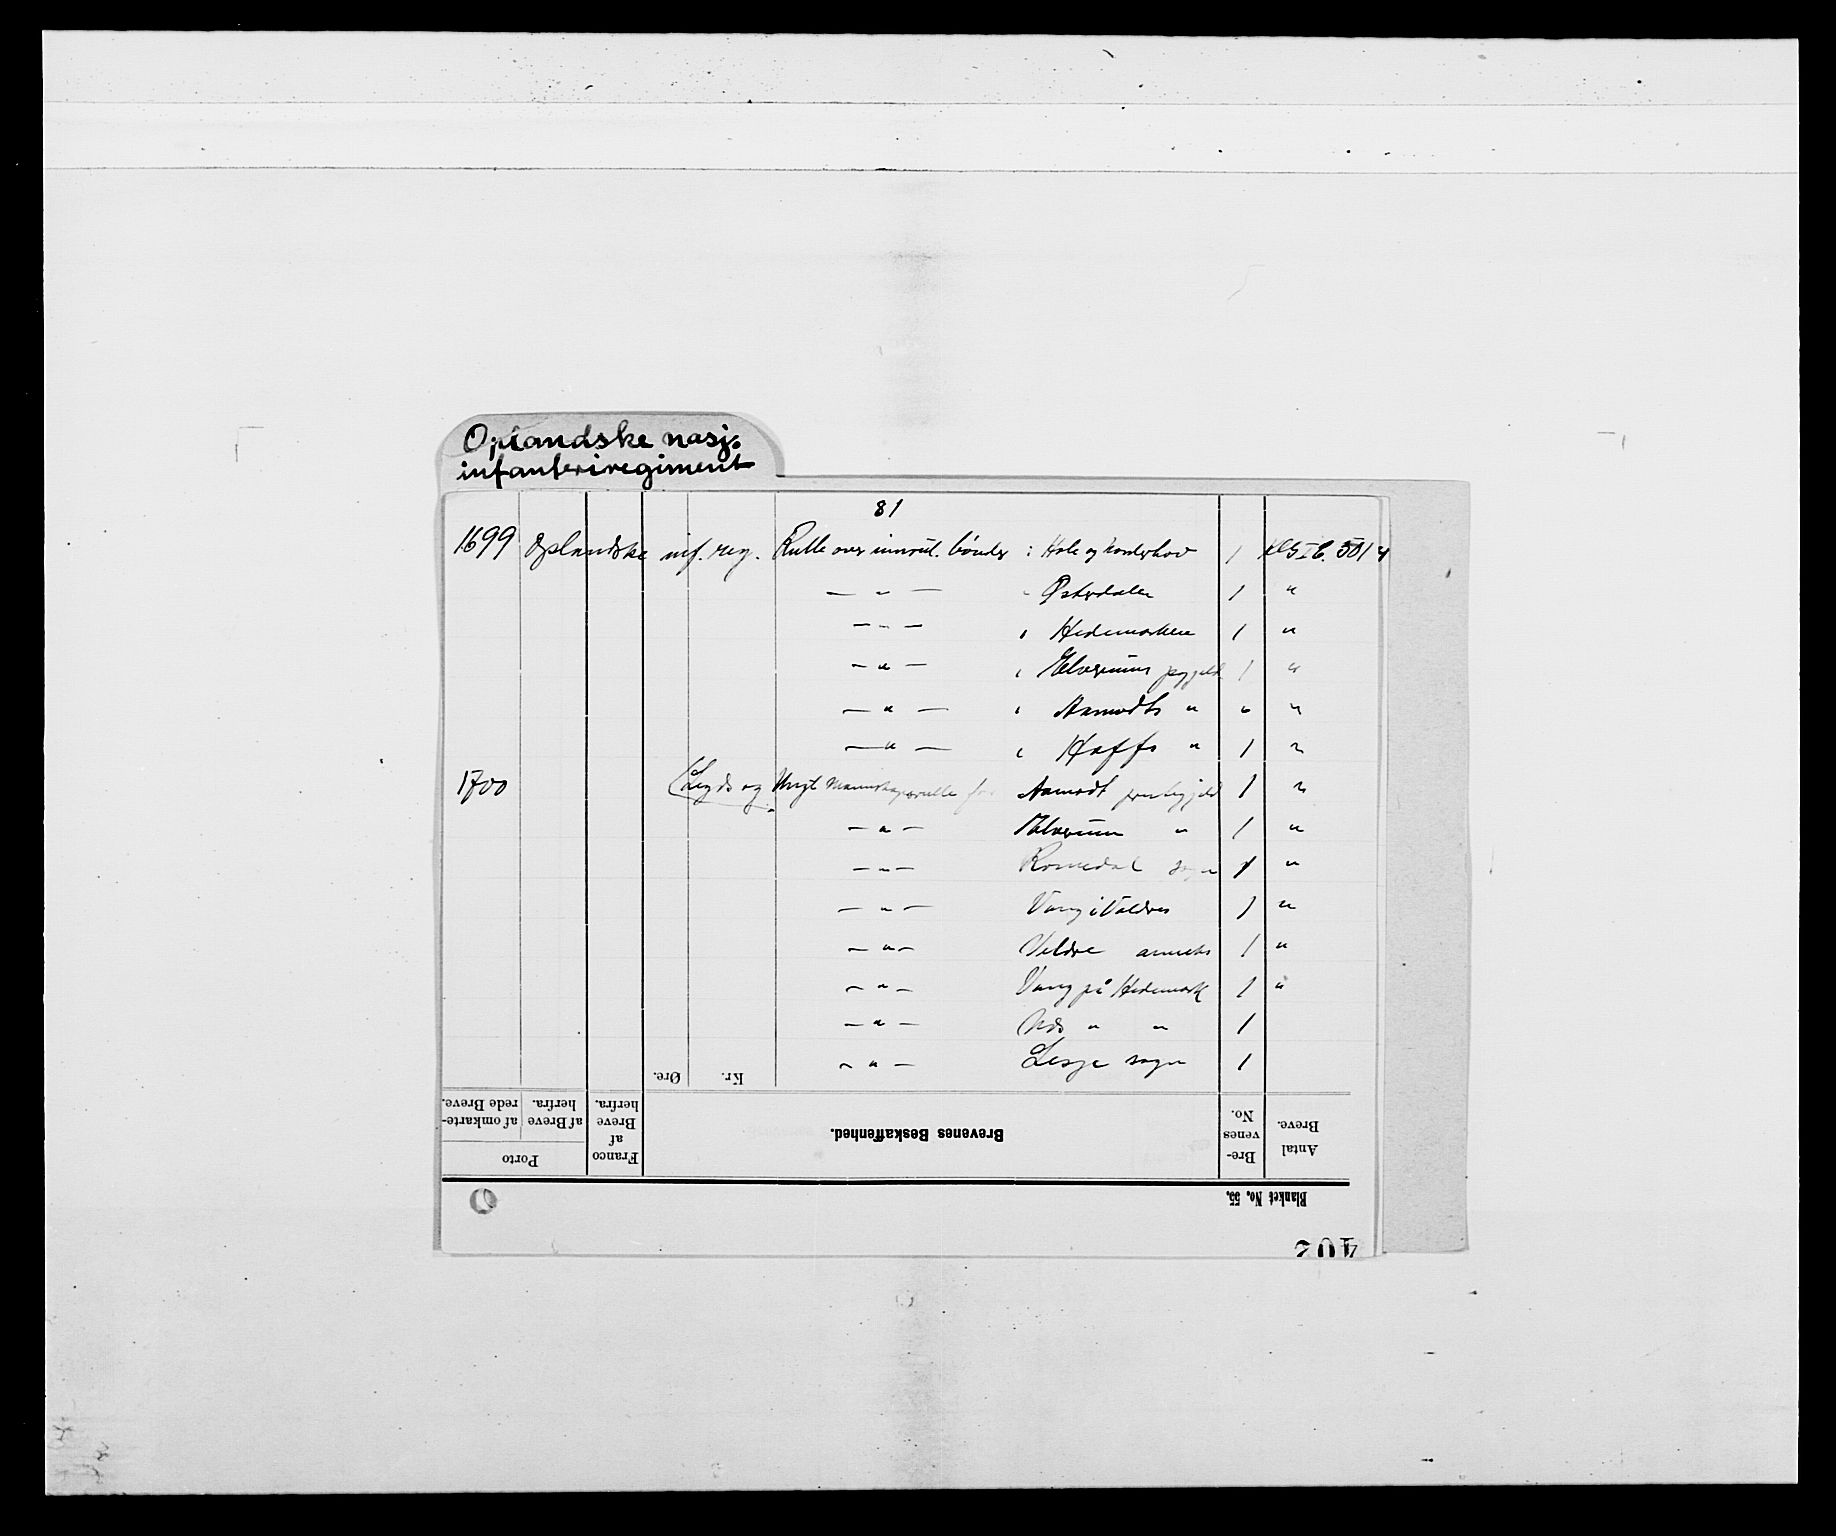 Oplandske nasj.
infanteriregiment
81
1699 Oplandske inf. reg. Rulle over innrul. bønder i Hole og Norderhov 1
— " — " Østerdalen 1 "
— " — i Hedemarken 1 "
— " — i Elverums prgjeld 1 "
— " — i Aamodts " " "
— " — i Hoffs " 1 "
1700 (Legds og Ungt Mannskapsrulle for Aamodt prestegjeld 1 "
— " — Elverum " 1 "
— " — Romedal sogn 1 "
— " — Vang i Valdres 1 "
— " — Veldre anneks 1 "
— " — Vang på Hedemark 1 "
— " — Nds " " 1
— " — Lesje sogn 1
Øre. Kr.
Porto
af omkarte-
rede Breve.
af Breve
herfra.
Franco
af
Breve
herfra.
Brevenes Beskaffenhed.
Bre-
venes
No.
Antal
Breve.
Blanket No. 55.
402